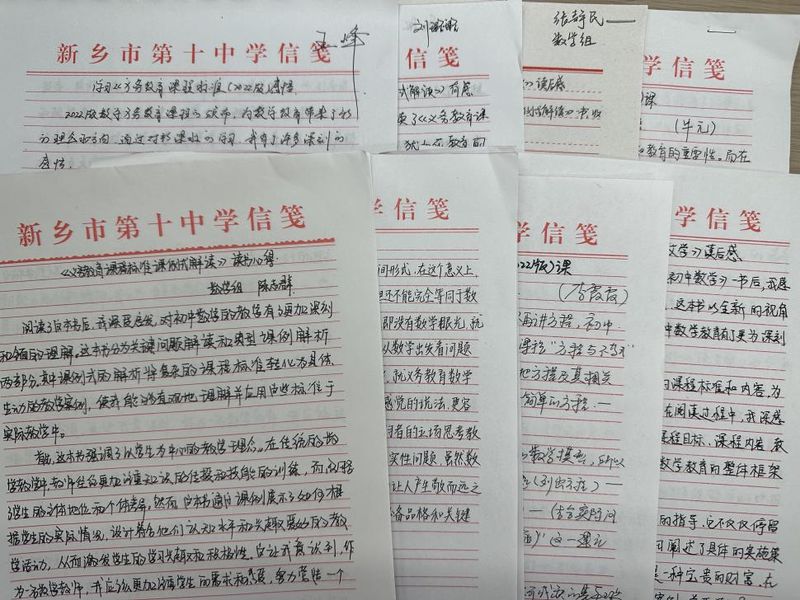 新乡市第十中学信笺
王峰
学习《义务教育课程标准(2022版)》感悟
2022版数学义务教育课程的颁布,为数学教育带来了新
的理念和方向,通过对新课标的学习,我有了许多深刻的
感悟。
信笺
式解读》有感
读了《义务教育课
张静民
数学组
》读后感
学信笺
课
(牛元)
和教育的重要性。而在
新乡市第十中学信笺
《义务教育课程标准课例式解读》读书心得
数学组 陈志群
阅读了此书后,我深受启发,对初中数学的教学有了更加深刻
和全面的理解。这本书分为关键问题解读和典型课例解析
两部分。其中课例式的解析将复杂的课程标准转化为具体
生动的教学案例,使我能够直观地理解并应用这些标准于
实际教学中。
首先,这本书强调了以学生为中心的教学理念。在传统的数
学教学中,教师往往更加注重知识的传授和技能的训练,而忽略
学生的主体地位和个体差异。然而,这本书通过课例展示了如何根
据学生的实际情况,设计符合他们认知水平和兴趣爱好的教
学活动,从而激发学生的学习兴趣和积极性。它让我意识到,作
为一名数学教师,我应该更加注重学生的需求和发展,努力营造一个
信笺
间形式,在这个意义上,
但还不能完全等同于数
即没有数学眼光,就
从数学出发看问题
,就义务教育数学
感觉的说法,更容
者的立场思考数
实性问题,虽然数
让人产生敬而远之
备品格和关键
学信笺
2022版》课
(李霞霞)
再讲方程,初中
课程“方程与不等式”
把方程及其相关
简单的方程.一
数学模型,所以
(列出方程)—
—(结合实际问
题)”这一单元
学信笺
数学》读后感
初中数学》一书后,我感
这本书以全新的视角
中数学教育有了更为深刻
的课程标准和内容,为
在阅读过程中,我深感
课程目标、课程内容、教
数学教育的整体框架
的指导,它不仅仅停留
阐述了具体的实施策
是一种宝贵的财富,在